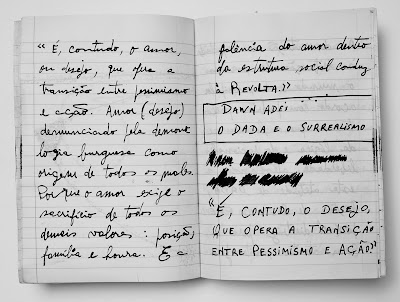 “É, contudo, o amor,
ou desejo, que opera a
transição entre pessimismo
e ação. Amor (desejo)
denunciado pela demono-
logia burguesa como
origem de todos os males.
Por que o amor exige o
sacrifício de todos os
demais valores: posição,
família e honra. E a
falência do amor dentro
da estrutura social conduz
à REVOLTA.”
DAWN ADEI
O DADA E O SURREALISMO
“É, CONTUDO, O DESEJO,
QUE OPERA A TRANSIÇÃO
ENTRE PESSIMISMO E AÇÃO?”